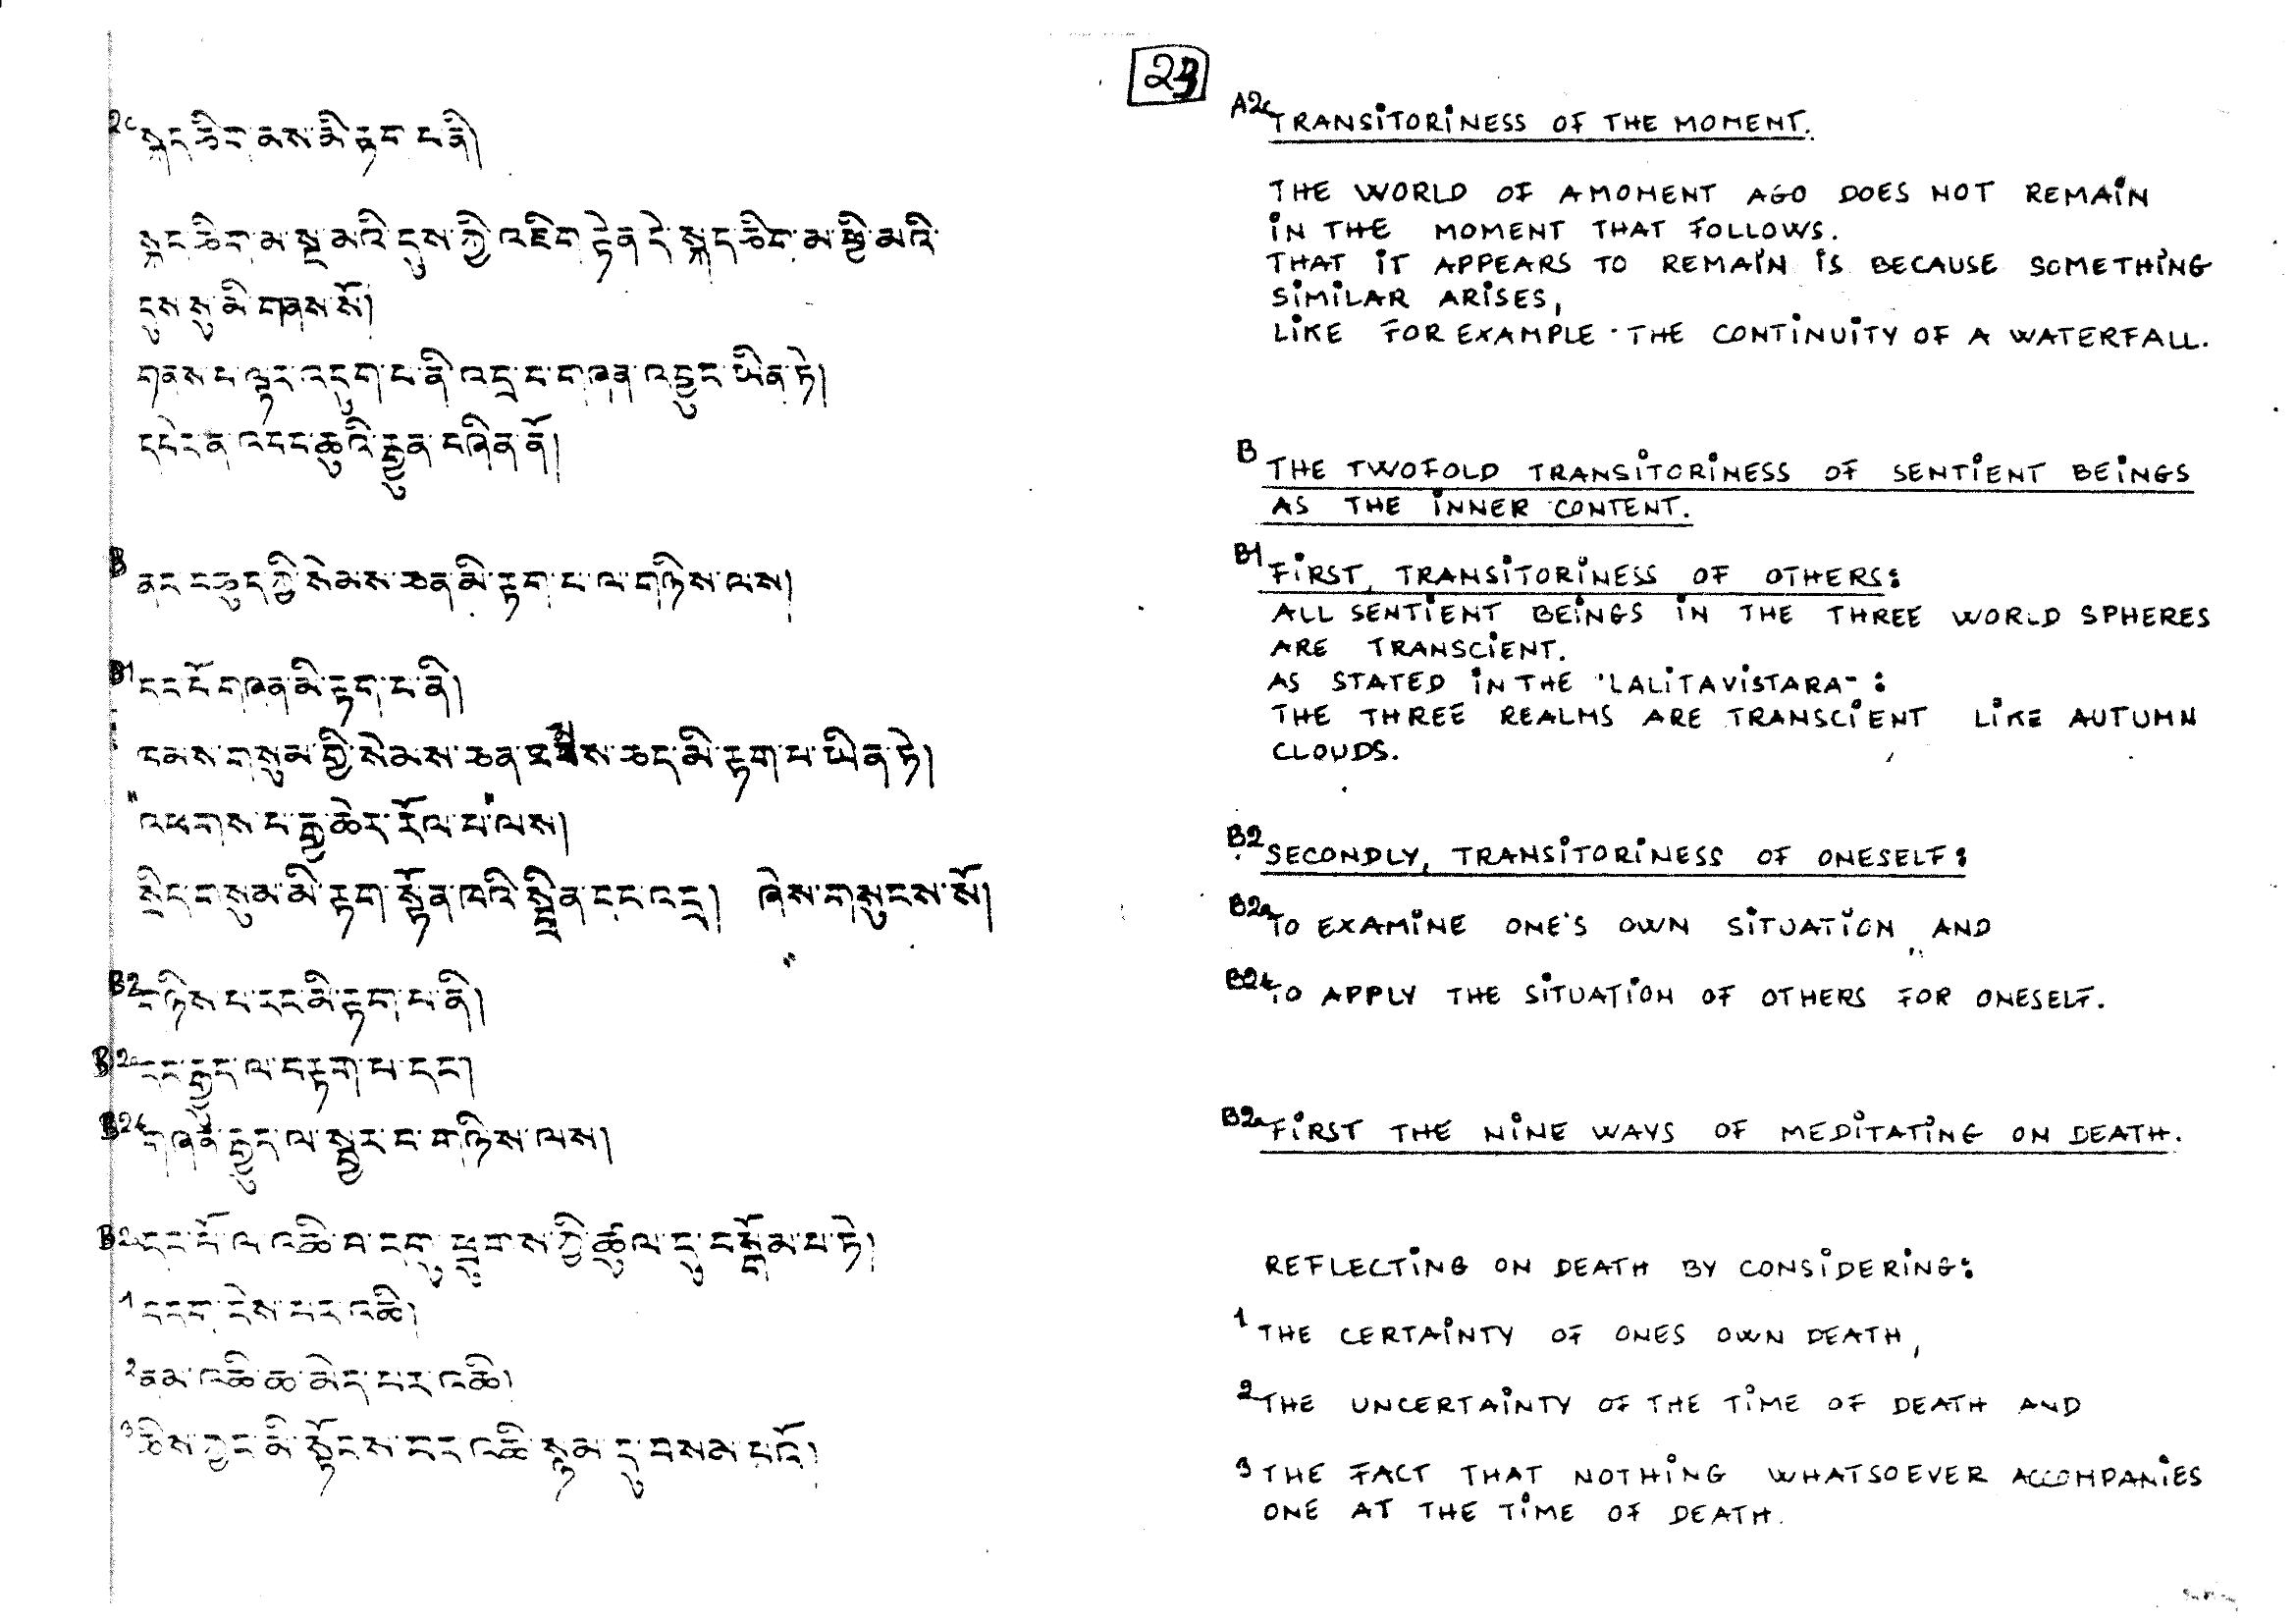 2c སྐད་ཅིག་མས་མི་རྟག་པ་ནི།
སྐད་ཅིག་མ་སྔ་མའི་དུས་ཀྱི་འཇིག་རྟེན་དེ་སྐད་ཅིག་མ་ཕྱི་མའི་
དུས་སུ་མི་གནས་སོ།
གནས་པ་ལྟར་འདུག་པ་ནི་འདྲ་བ་གཞན་འབྱུང་ཡིན་ཏེ།
དཔེར་ན་འབབ་ཆུའི་རྒྱུན་བཞིན་ནོ།
B ནང་བཅུད་ཀྱི་སེམས་ཅན་མི་རྟག་པ་ལ་གཉིས་ལས།
B1 དང་པོ་གཞན་མི་རྟག་པ་ནི།
ཁམས་གསུམ་གྱི་སེམས་ཅན་ཐམས་ཅད་མི་རྟག་པ་ཡིན་ཏེ།
"འཕགས་པ་རྒྱ་ཆེར་རོལ་པ"ལས།
སྲིད་གསུམ་མི་རྟག་སྟོན་ཁའི་སྤྲིན་དང་འདྲ། ཞེས་གསུངས་སོ།
B2 གཉིས་པ་རང་མི་རྟག་པ་ནི།
B2a རང་རྒྱུད་ལ་བརྟག་པ་དང།
B2b གཞན་རྒྱུད་ལ་སྦྱར་བ་གཉིས་ལས།
B2a དང་པོ་ལ་འཆི་བ་དགུ་ཕྲུགས་ཀྱི་ཚུལ་དུ་བསྒོམ་པ་ཏེ།
1 བདག་ངེས་པར་འཆི།
2 ནམ་འཆི་ཆ་མེད་པར་འཆི།
3 ཅིས་ཀྱང་མི་སྟོངས་པར་འཆི་སྙམ་དུ་བསམ་པའོ།
23
A2c TRANSITORINESS OF THE MOMENT.
THE WORLD OF A MOMENT AGO DOES NOT REMAIN
IN THE MOMENT THAT FOLLOWS.
THAT IT APPEARS TO REMAIN IS BECAUSE SOMETHING
SIMILAR ARISES,
LIKE FOR EXAMPLE THE CONTINUITY OF A WATERFALL.
B THE TWOFOLD TRANSITORINESS OF SENTIENT BEINGS
AS THE INNER CONTENT.
B1 FIRST, TRANSITORINESS OF OTHERS:
ALL SENTIENT BEINGS IN THE THREE WORLD SPHERES
ARE TRANSCIENT.
AS STATED IN THE 'LALITAVISTARA':
THE THREE REALMS ARE TRANSCIENT LIKE AUTUMN
CLOUDS.
B2 SECONDLY, TRANSITORINESS OF ONESELF:
B2a TO EXAMINE ONE'S OWN SITUATION, AND
B2b TO APPLY THE SITUATION OF OTHERS FOR ONESELF.
B2a FIRST THE NINE WAYS OF MEDITATING ON DEATH.
REFLECTING ON DEATH BY CONSIDERING:
1 THE CERTAINTY OF ONES OWN DEATH,
2 THE UNCERTAINTY OF THE TIME OF DEATH AND
3 THE FACT THAT NOTHING WHATSOEVER ACCOMPANIES
ONE AT THE TIME OF DEATH.